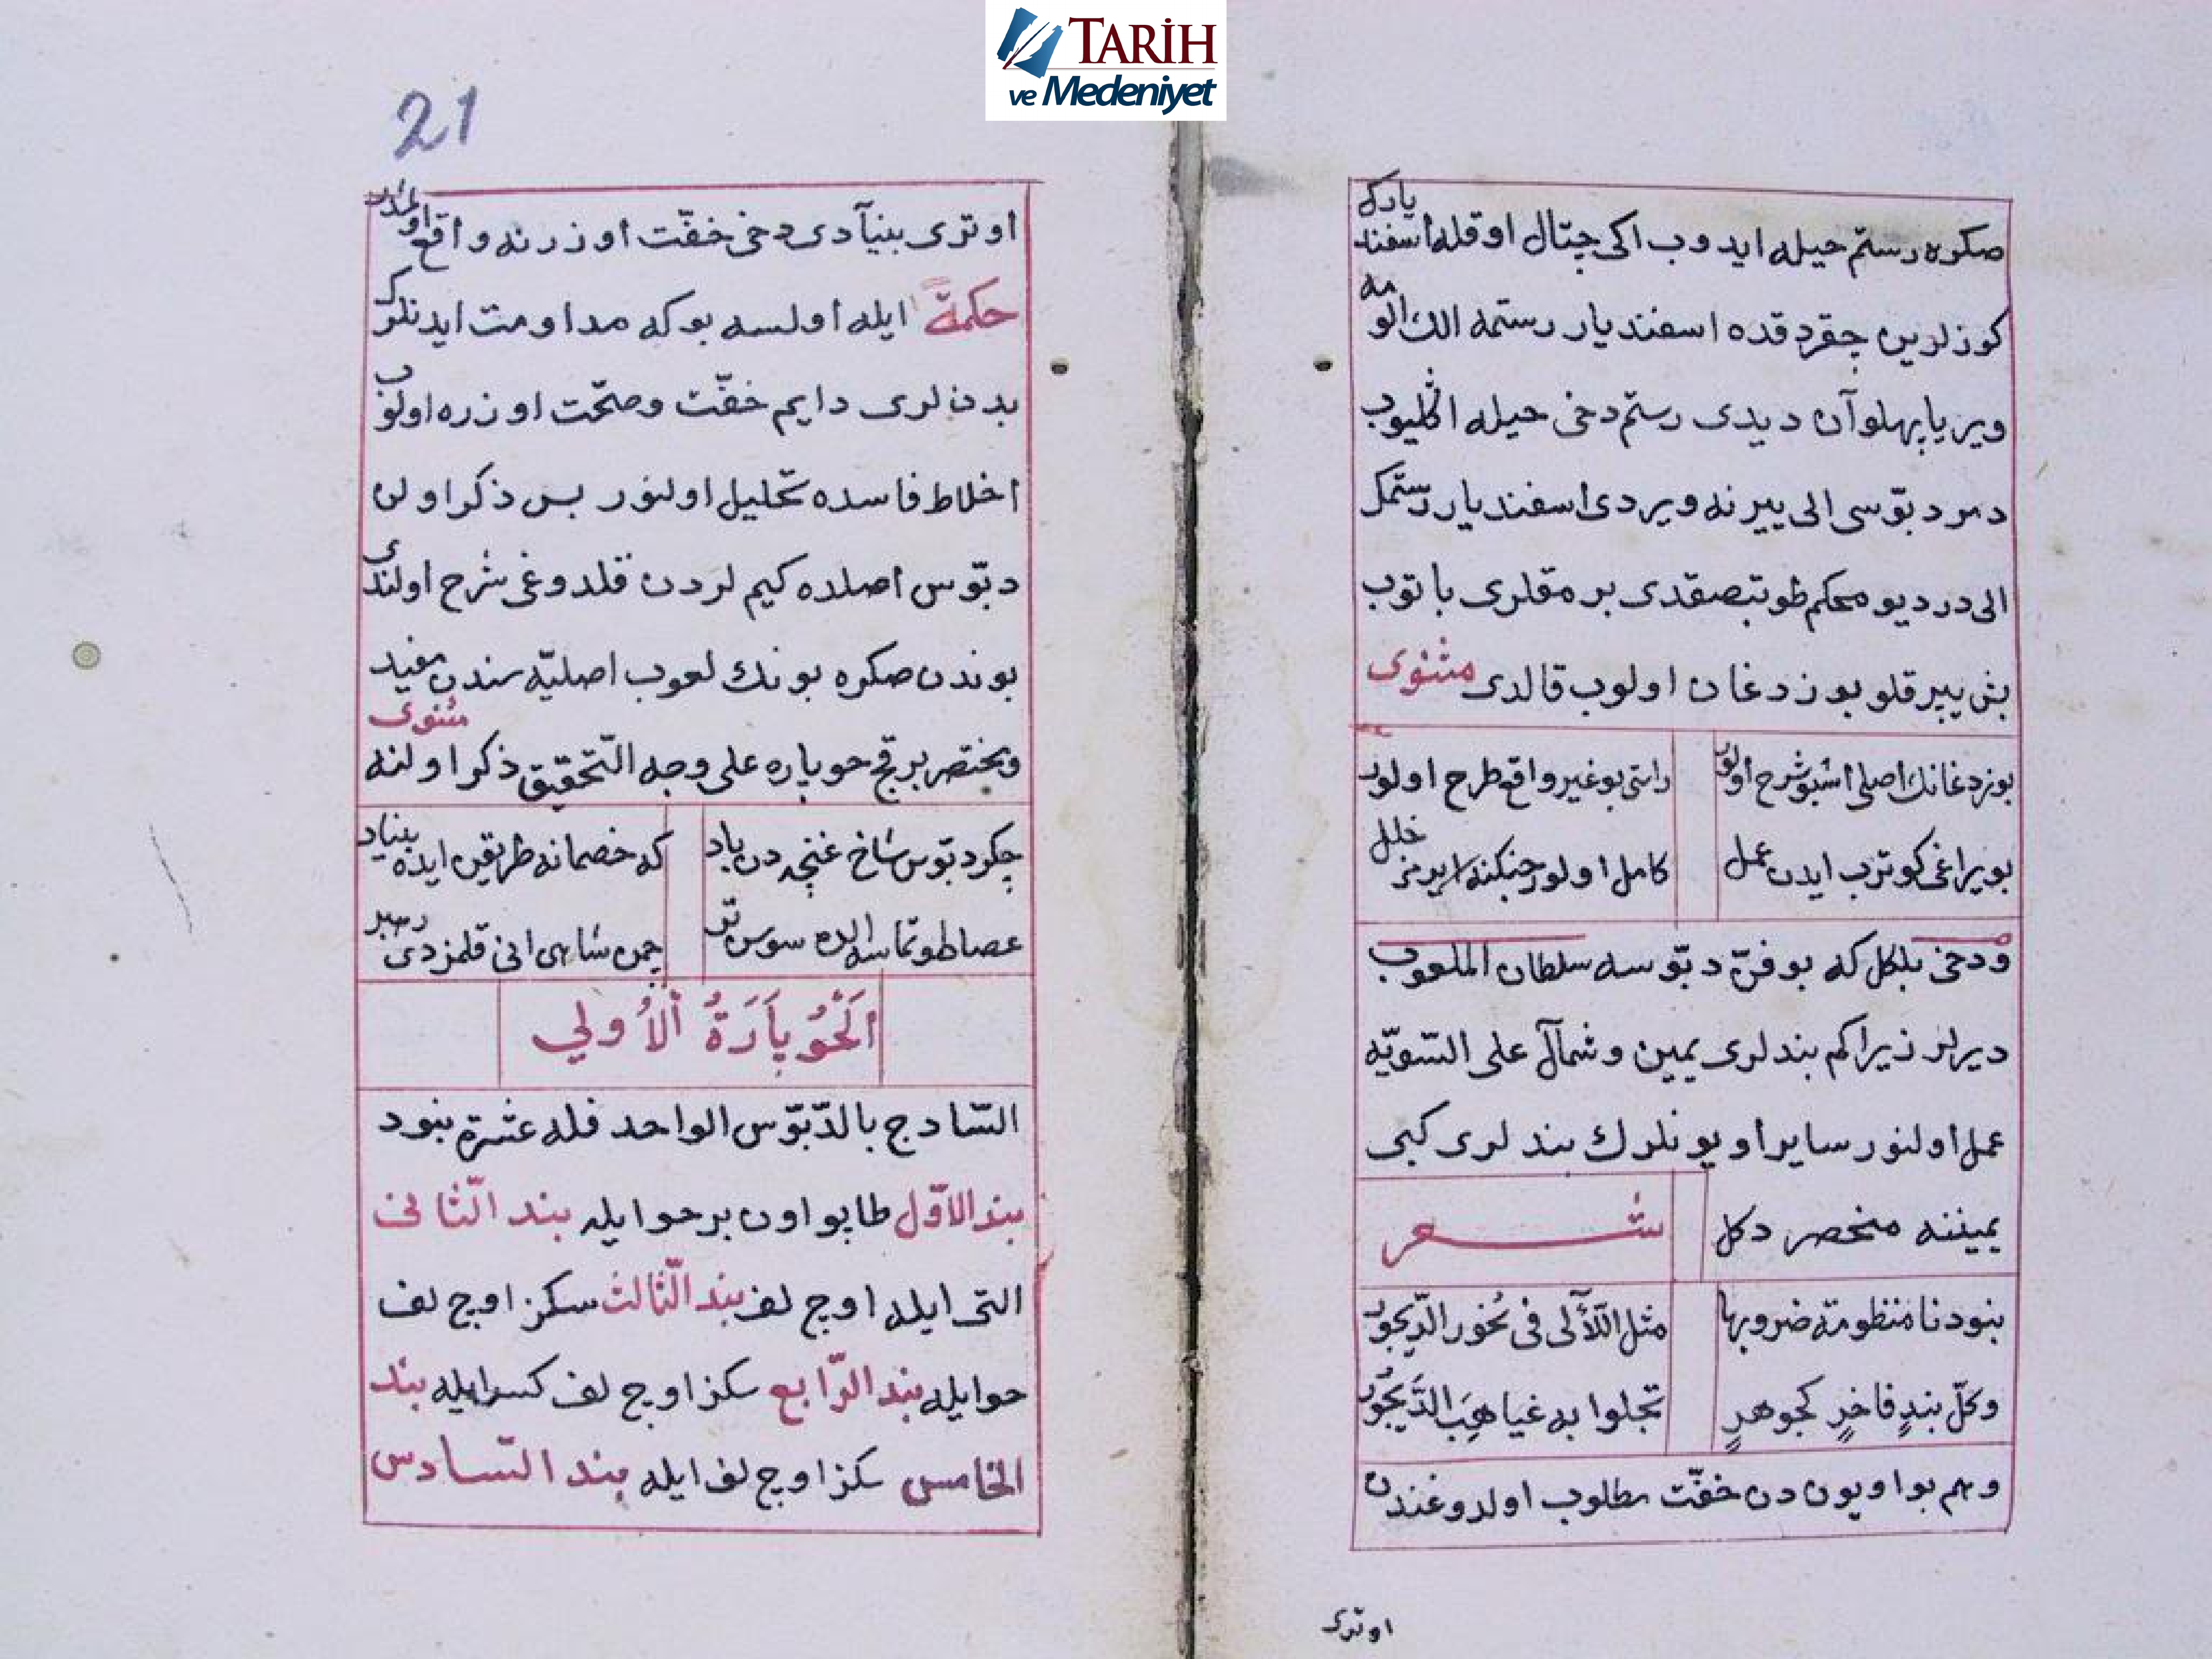 TARİH
ve Medeniyet
صكره رستم حيله ايدوب اكى چتال اوقله اسفنديارك
كوزلرين چقردقده اسفنديار رستمه الك الومه
وير يا پهلوآن ديدى رستم دخى حيله اكليوب
دمر دبّوسى الى ييرنه ويردى اسفنديار رستمك
الى در ديو محكم طوتبصقدى برمقلرى باتوب
بش ييرقلو بوزدغان اولوب قالدى مثنوى
بوزدغانك اصلى اشبو شرح اولور
راستى بو غير واقع طرح اولور
بويراغى كوتروب ايدن عمل
كامل اولور جنكنه ايرمز خلل
و دخى بلكل كه بو فنّ دبّوسه سلطان الملعوب
ديرلر زيرا كم بندلرى يمين و شمالآ على السّويّه
عمل اولنور ساير اويونلرك بندلرى كبى
يميننه منحصر دكل
شعر
بنودنا منظومة ضروبها
مثل اللآلى فى نحور الدّيجور
وكلّ بندٍ فاخرٍ كجوهرٍ
تجلوا به غياهب الدّيجور
وهم بو اويون دن خفّت مطلوب اولدوغندن
اوترى
21
اوترى بنيآدى دخى خفّت اوزرنه واقع اولمشدر
حكمة ايله اولسه بوكه مداومت ايدنلرك
بدن لرى دايم خفّت وصحّت اوزره اولوب
اخلاط فاسده تحليل اولنور بس ذكر اولن
دبّوس اصلده كيم لردن قلدوغى شرح اولندى
بوندن صكره بونك لعوب اصليّه سندن مفيد
ومختصر برقچ حوباره على وجه التّحقيق ذكر اولنه
مثنوى
چكر دبّوس شاخ غنچه دن ياد
كه خصمانه طريقن ايده بنياد
عصا طوتماسه الده سوسن تر
چمن شاهى انى قلمزدى رهبر
اَلْحُوبَارَةُ اْلاُولي
السّادج بالدّبّوس الواحد فله عشرة بنود
بند الاوّل طاپو اون بر حوايله بند الثّانى
التى ايله اوچ لف بند الثّالث سكز اوچ لف
حوايله بند الرّابع سكز اوچ لف كسر ايله بند
الخامس سكز اوچ لف ايله بند السّادس